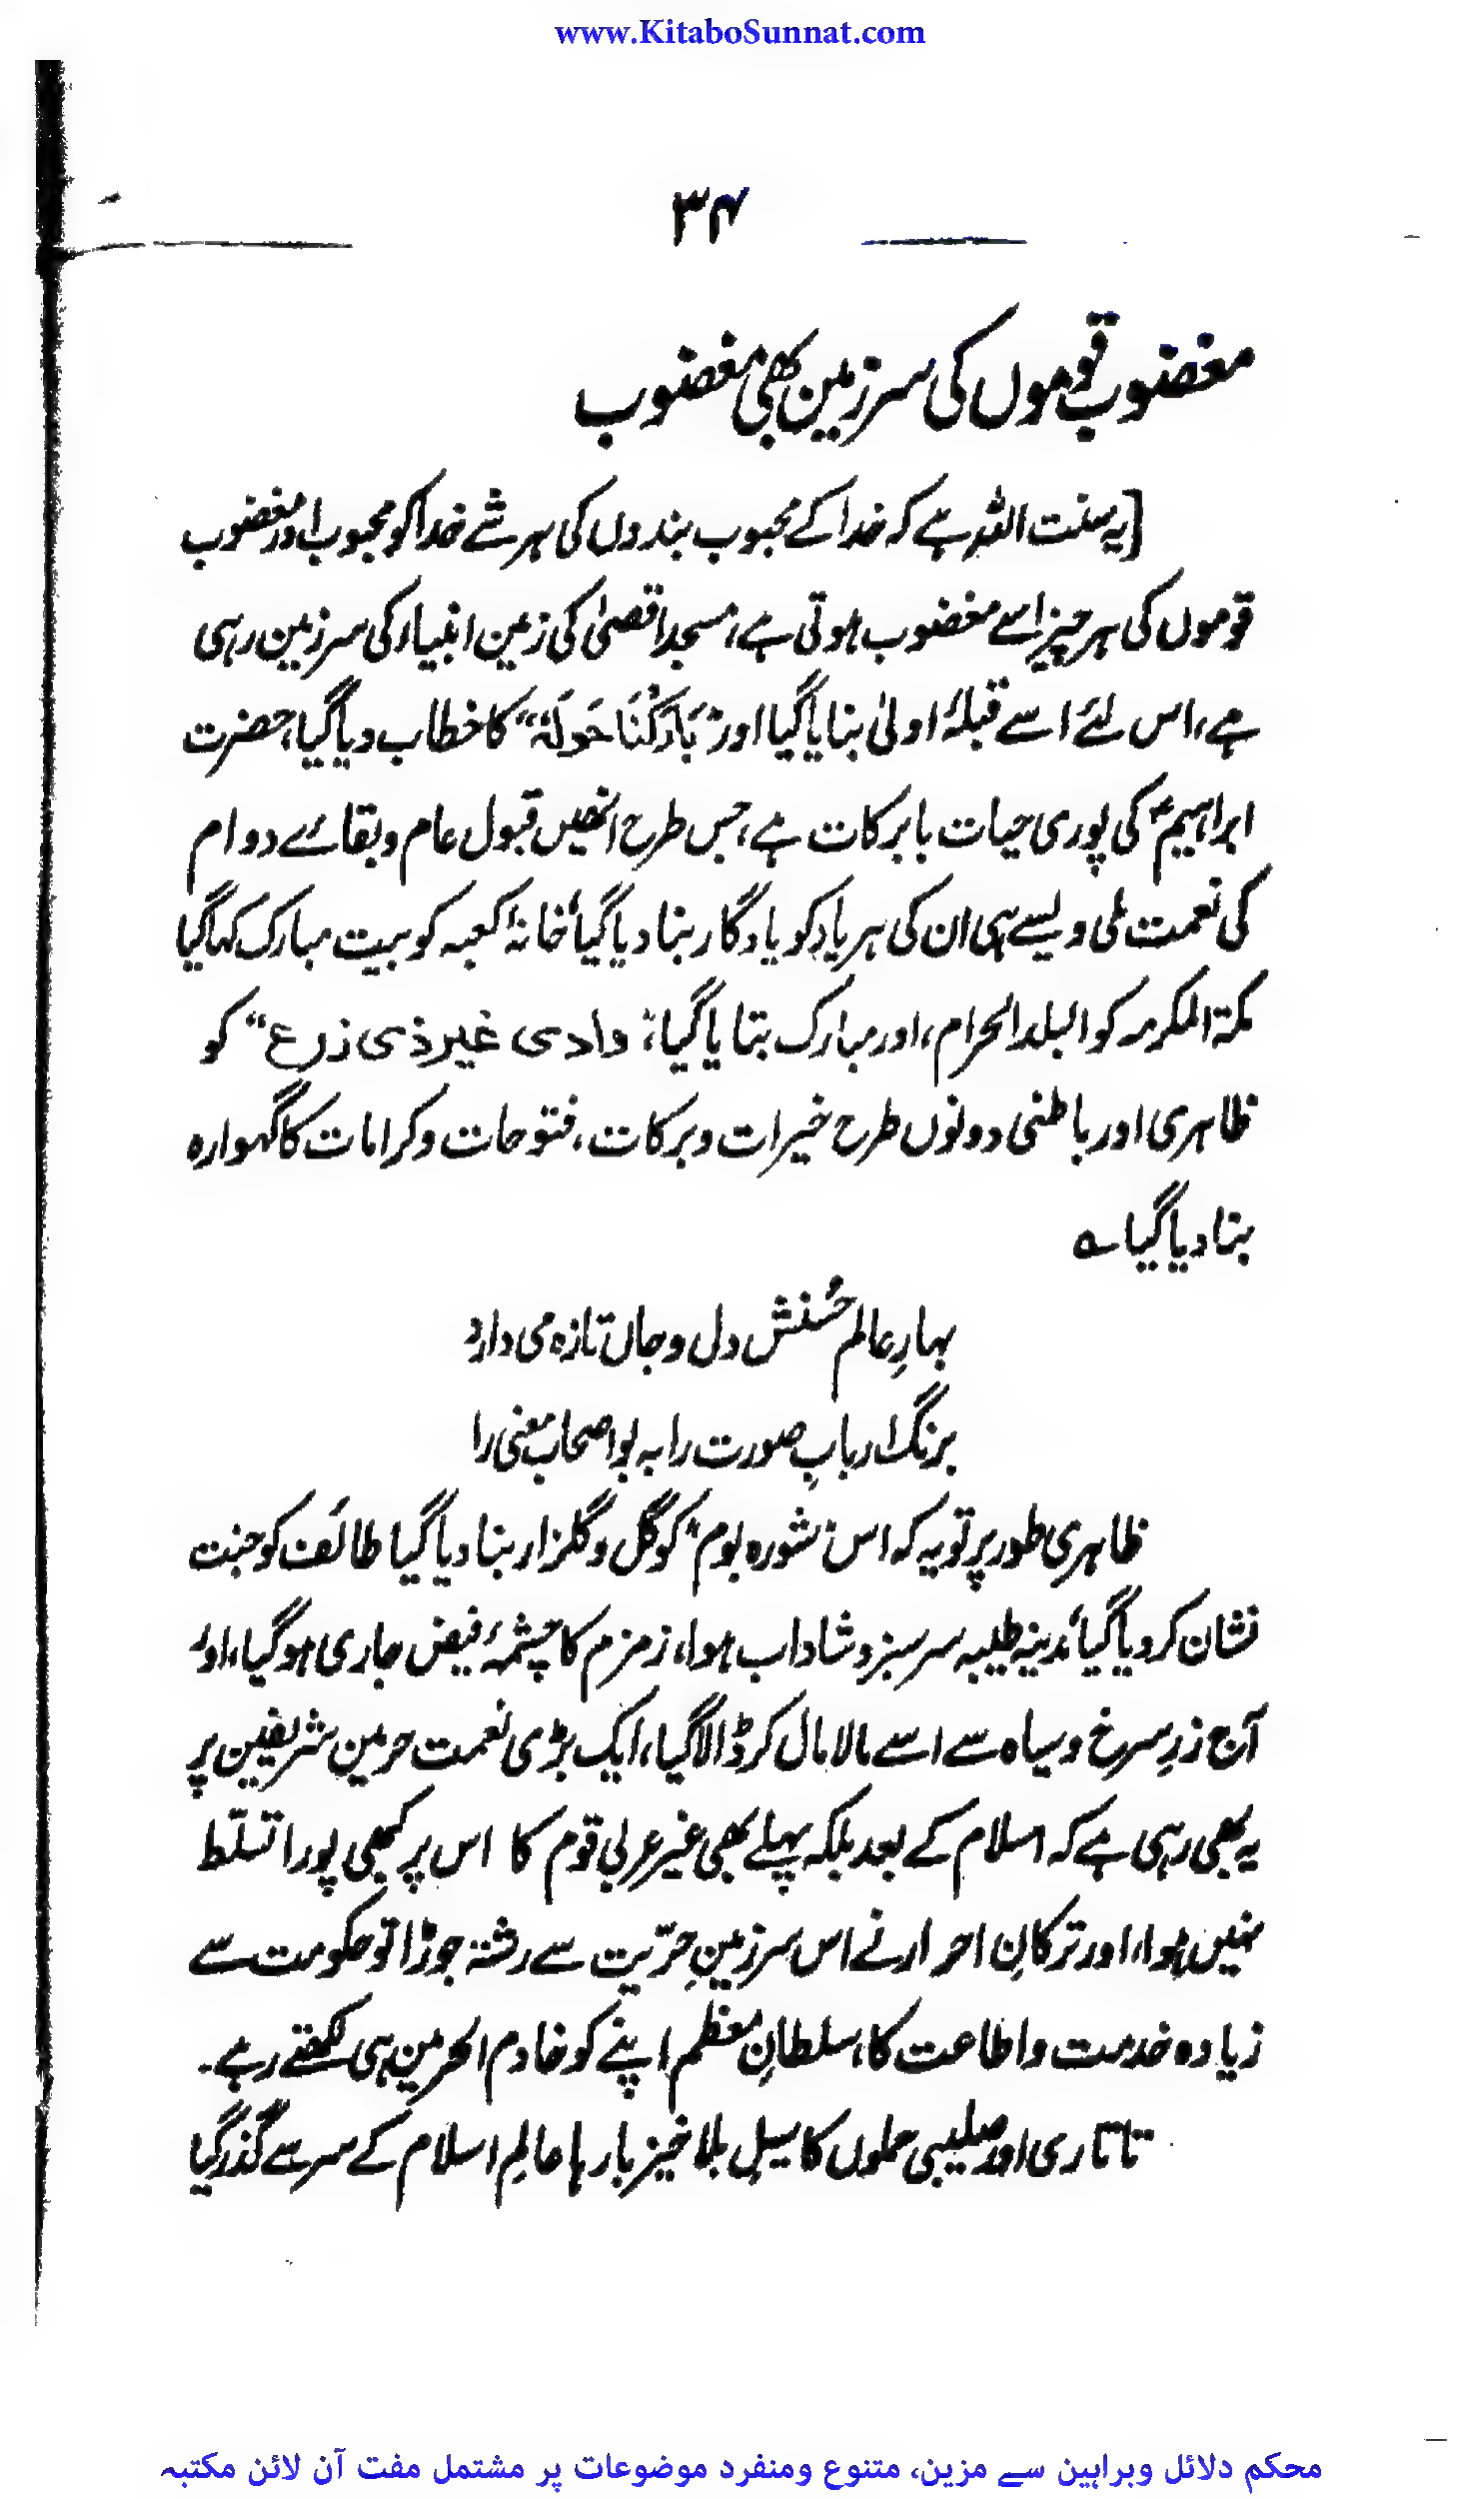 www.KitaboSunnat.com
۳۴
مغضوب قوموں کی سرزمین بھی مغضوب
[یہ سنت اللہ ہے کہ خدا کے محبوب بندوں کی ہر شے خدا کو محبوب اور مغضوب
قوموں کی ہر چیز اسے مغضوب ہوتی ہے، مسجد اقصیٰ کی زمین انبیاء کی سرزمین رہی
ہے، اس لئے اسے قبلۂ اولیٰ بنایا گیا اور "بَارَكْنَا حَولَهٗ" کا خطاب دیا گیا، حضرت
ابراہیمؑ کی پوری حیات بابرکات ہے، جس طرح انھیں قبول عام و بقائے دوام
کی نعمت ملی ویسے ہی ان کی ہر یاد کو یادگار بنا دیا گیا، خانۂ کعبہ کو بیت مبارک کہا گیا
مکۃ المکرمہ کو البلد الحرام، اور مبارک بتایا گیا، "وادی غیر ذی زرع" کو
ظاہری اور باطنی دونوں طرح خیرات و برکات، فتوحات و کرامات کا گہوارہ
بنا دیا گیا ؎
بہارِ عالم حُسنش دل و جاں تازہ می دارد
برنگ اربابِ صورت را بہ بو اصحاب معنی را
ظاہری طور پر تو یہ کہ اس "شورہ بوم" کو گل و گلزار بنا دیا گیا طائف کو جنت
نشان کر دیا گیا، مدینہ طیبہ سرسبز و شاداب ہوا، زمزم کا چشمۂ فیض جاری ہو گیا، اور
آج زرِ سرخ و سیاہ سے اسے مالا مال کر ڈالا گیا، ایک بڑی نعمت حرمین شریفین پر
یہ بھی رہی ہے کہ اسلام کے بعد بلکہ پہلے بھی غیر عربی قوم کا اس پر کبھی پورا تسلّط
نہیں ہوا، اور ترکانِ احرار نے اس سرزمینِ حرّیت سے رشتہ جوڑا تو حکومت سے
زیادہ خدمت و اطاعت کا، سلطانِ معظم اپنے کو خادم الحرمین ہی لکھتے رہے۔
تاتاری اور صلیبی حملوں کا سیل بلا خیز بارہا عالمِ اسلام کے سر سے گذر گیا
محکم دلائل وبراہین سے مزین، متنوع ومنفرد موضوعات پر مشتمل مفت آن لائن مکتبہ